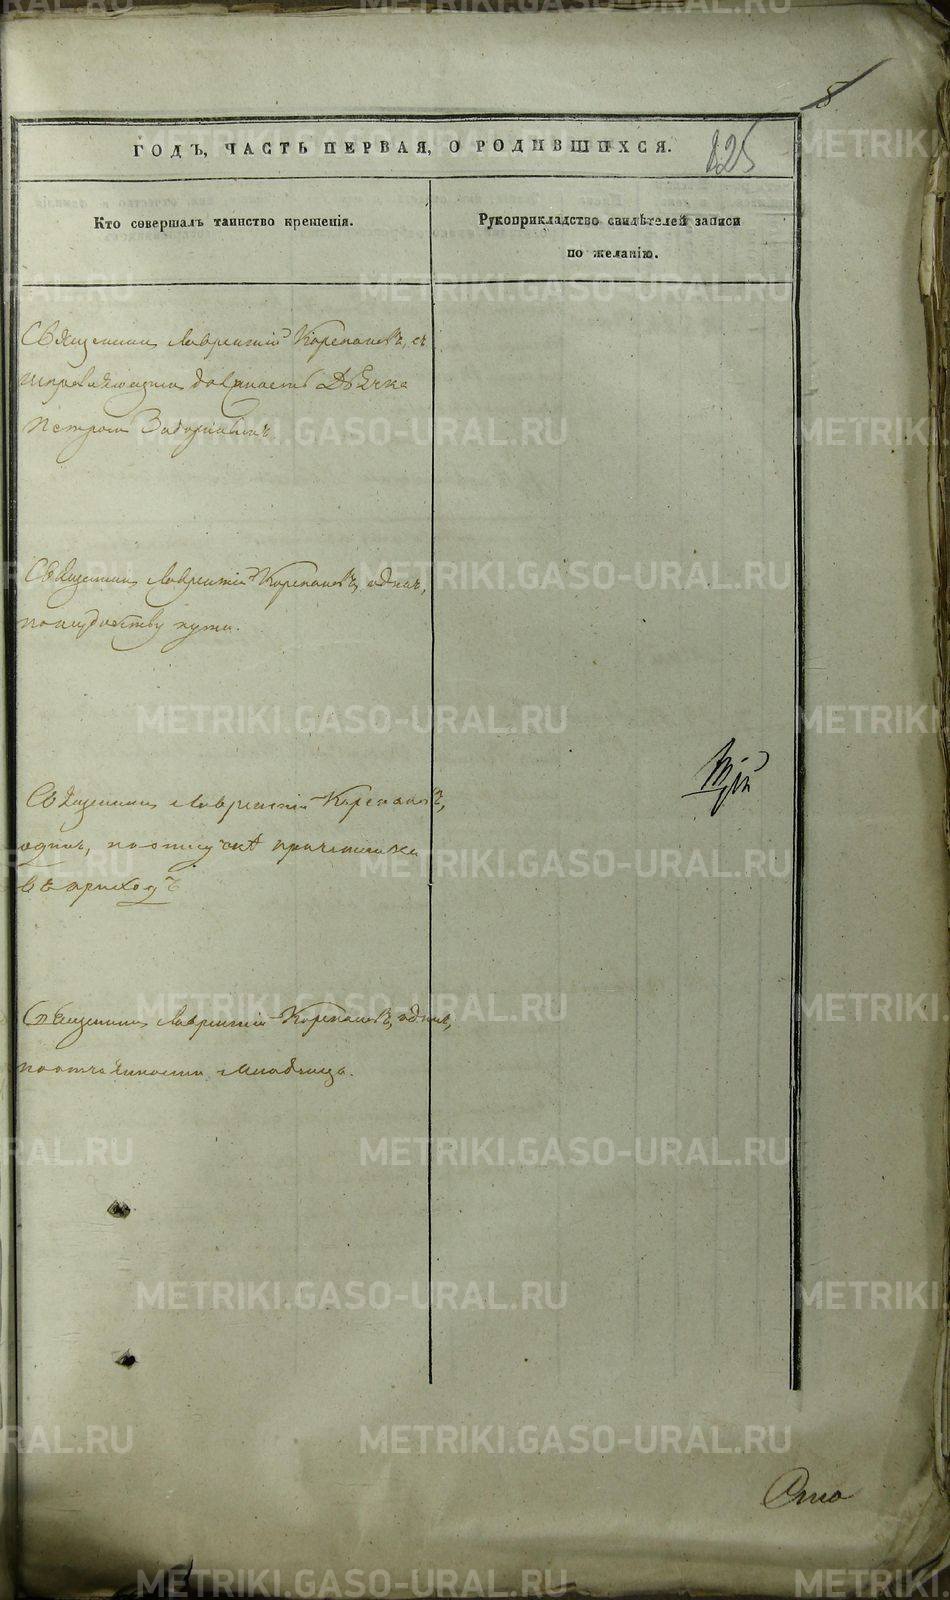 8
ГОДЪ, ЧАСТЬ ПЕРВАЯ, О РОДИВШИХСЯ.
125
Кто совершалъ таинство крещенія.
Рукоприкладство свидѣтелей записи
по желанію.
Священникъ Лаврентій Корепановъ, съ
исправляющимъ должность Дьячка
Петромъ
Священникъ Лаврентій Корепановъ, одинъ,
по неудобству пути.
Священникъ Лаврентій Корепановъ,
одинъ, по отлучкѣ причетника
въ приходъ
Священникъ Лаврентій Корепановъ, одинъ,
по отчаянности младенца.
METRIKI.GASO-URAL.RU